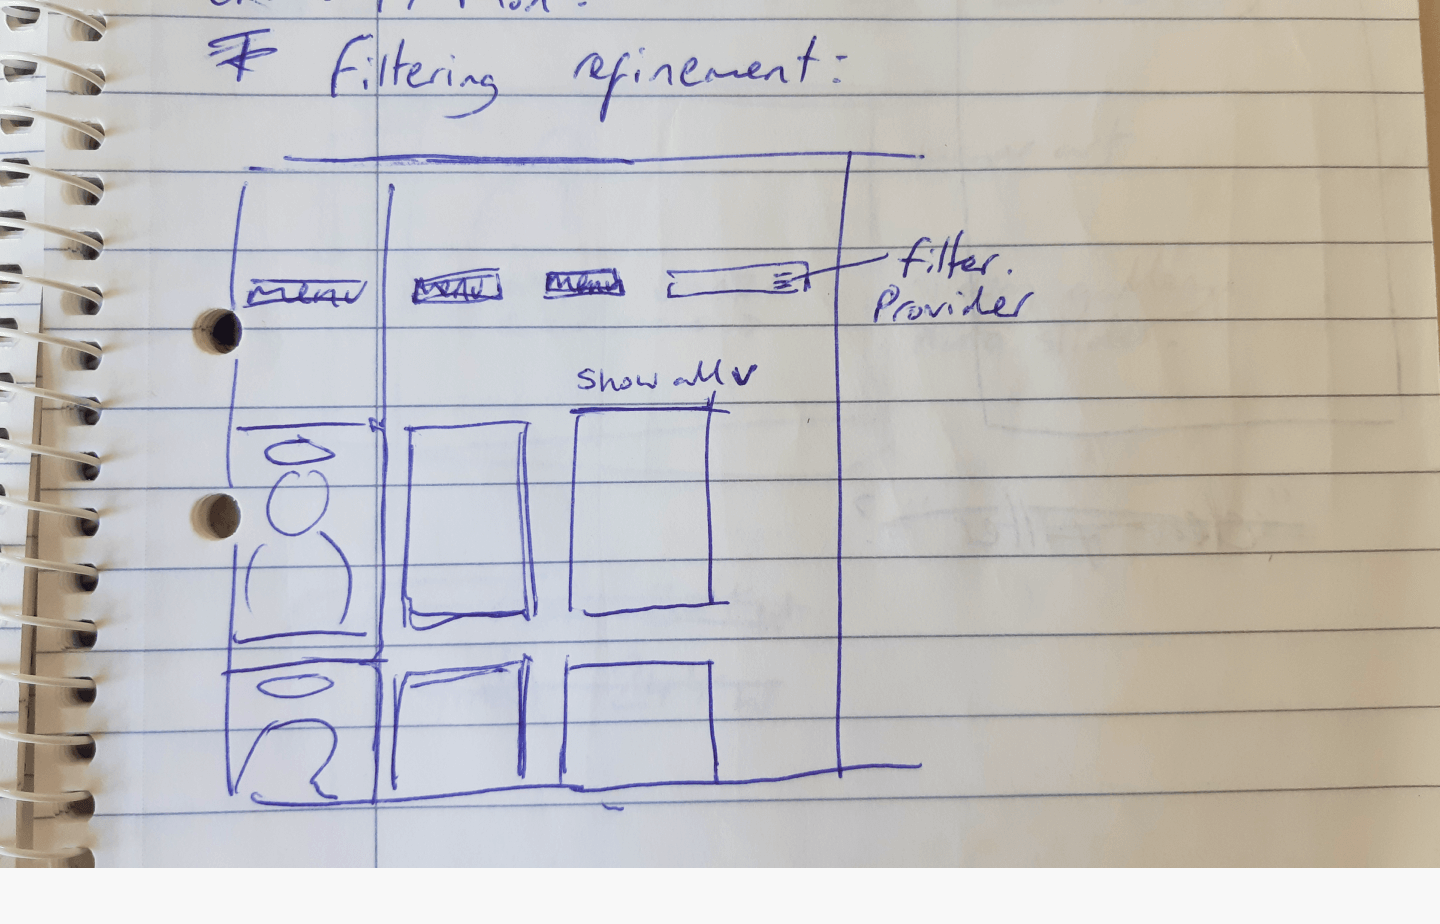 * Filtering refinement:
menu menu menu
filter.
Provider
Show all v